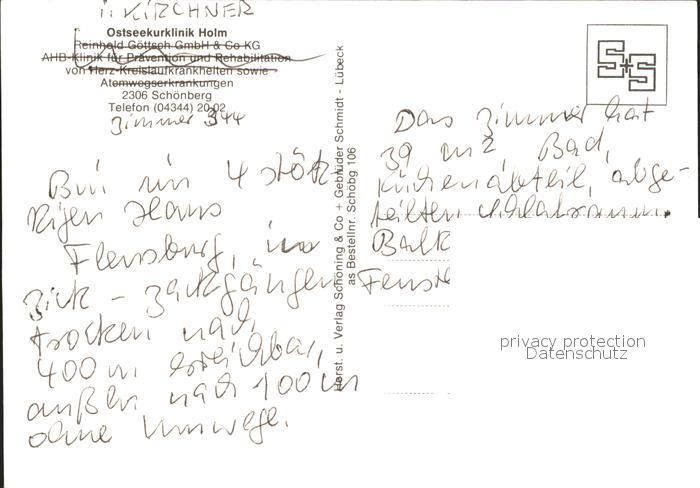 ü. KIRCHNER
Ostseekurklinik Holm
Reinhold Göttsch GmbH & Co KG
AHB-Klinik für Prävention und Rehabilitation
von Herz-Kreislaufkrankheiten sowie
Atemwegserkrankungen
2306 Schönberg
Telefon (04344) 20 02
Zimmer 344
Bin im 4 stök-
kigen Haus
Flensburg, in
Zick-zackgängen
trocken nach
400 m erreichbar,
außen nach 100 m
ohne Umwege.
Horst. u. Verlag Schöning & Co + Gebrüder Schmidt - Lübeck
as Bestellnr. Schöbg 106
SS
Das Zimmer hat
39 m2 Bad,
Küchenabteil, abge-
teilten Schlafraum.
Balk
Fenste
privacy protection
Datenschutz